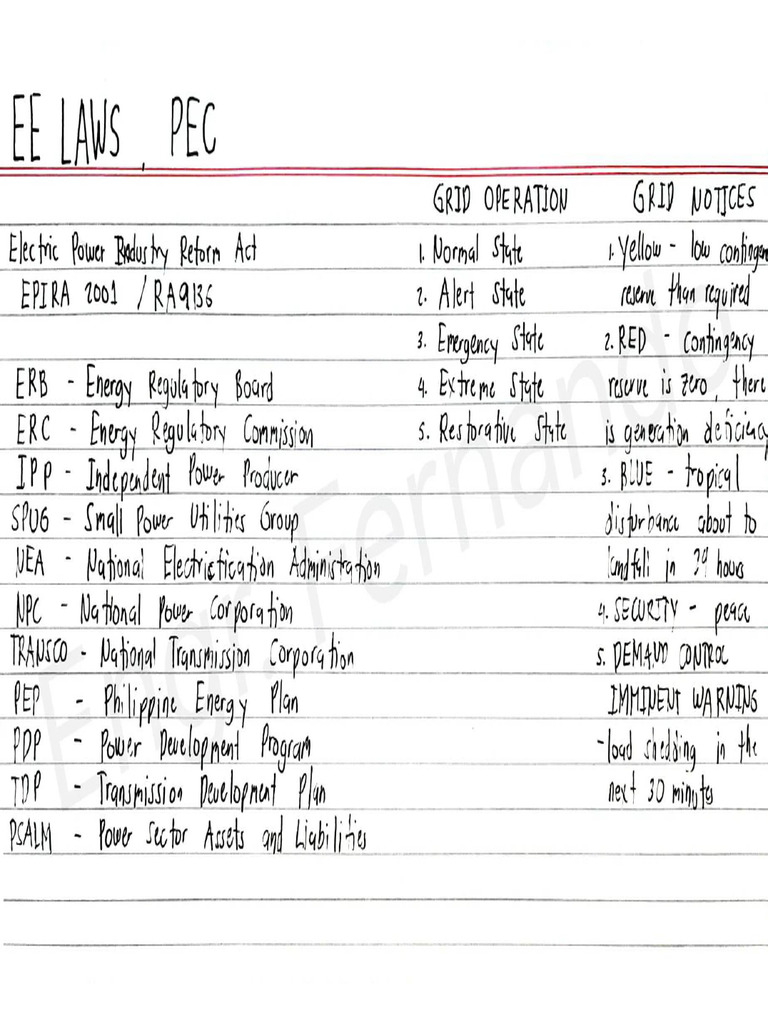 EE LAWS, PEC
Electric Power Industry Reform Act
EPIRA 2001 / RA9136
ERB - Energy Regulatory Board
ERC - Energy Regulatory Commission
IPP - Independent Power Producer
SPUG - Small Power Utilities Group
NEA - National Electrictication Administration
NPC - National Power Corporation
TRANSCO - National Transmission Corporation
PEP - Philippine Energy Plan
PDP - Power Development Program
TDP - Transmission Development Plan
PSALM - Power Sector Assets and Liabilities
GRID OPERATION
1. Normal State
2. Alert State
3. Emergency State
4. Extreme State
5. Restorative State
GRID NOTICES
1. Yellow - low contingen
reserve than required
2. RED - contingency
reserve is zero, there
is generation deficiency
3. BLUE - tropical
disturbance about to
landfall in hours
4. SECURITY - peace
5. DEMAND CONTROL
IMMINENT WARNING
- load shedding in the
next 30 minutes
Engr. Fernando